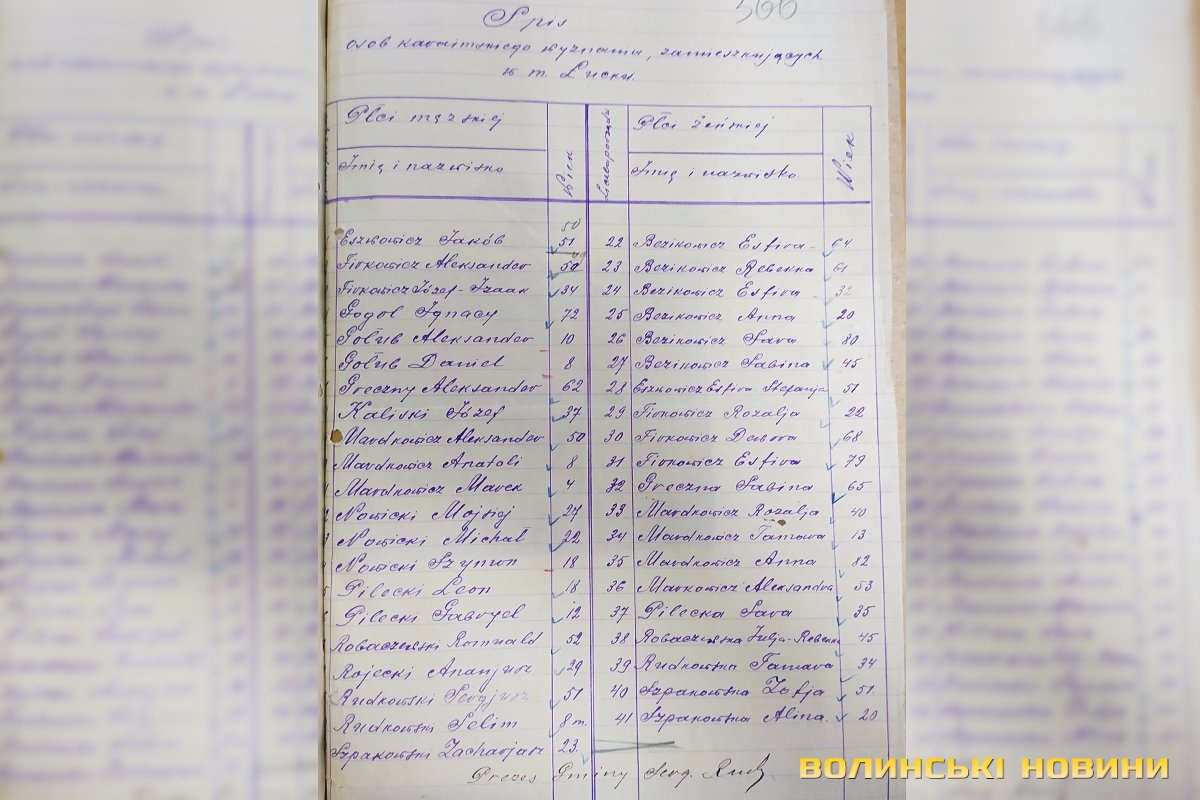 Spis 366
osob karaimskiego wyznania, zamieszkujących
w m. Łucku.
Płci męzkiej Płci żeńskiej
Imię i nazwisko Wiek Imię i nazwisko Wiek
50
Eszwowicz Jakób 51 22 Bezikowicz Estira 64
Firkowicz Aleksander 50 23 Bezikowicz Rebekka 61
Firkowicz Józef-Izaak 34 24 Bezikowicz Estira 32
Gogol Ignacy 72 25 Bezikowicz Anna 20
Gołub Aleksander 10 26 Bezikowicz Sara 80
Gołub Daniel 8 27 Bezikowicz Sabina 45
Greczny Aleksander 62 28 Eszwowicz Estira Stefanja 51
Kaliski Józef 37 29 Firkowicz Rozalja 22
Mardkowicz Aleksander 50 30 Firkowicz Debora 68
Mardkowicz Anatoli 8 31 Firkowicz Estira 79
Mardkowicz Marek 4 32 Greczna Sabina 65
Nowicki Mojżej 27 33 Mardkowicz Rozalja 40
Nowicki Michał 22 34 Mardkowicz Tamara 13
Nowicki Szymon 18 35 Mardkowicz Anna 82
Pilecki Leon 18 36 Markowicz Aleksandra 53
Pilecki Gabryel 12 37 Pilecka Sara 35
Robaczewski Romuald 52 38 Robaczewska Julja-Rebekka 45
Rojecki Ananjusz 29 39 Rudkowska Tamara 34
Rudkowski Sergjusz 51 40 Szpakowska Zofja 51
Rudkowski Selim 8 m. 41 Szpakowska Alina. 20
Szpakowski Zacharjasz 23.
Prezes Gminy Serg. Rudk
ВОЛИНСЬКІ НОВИНИ